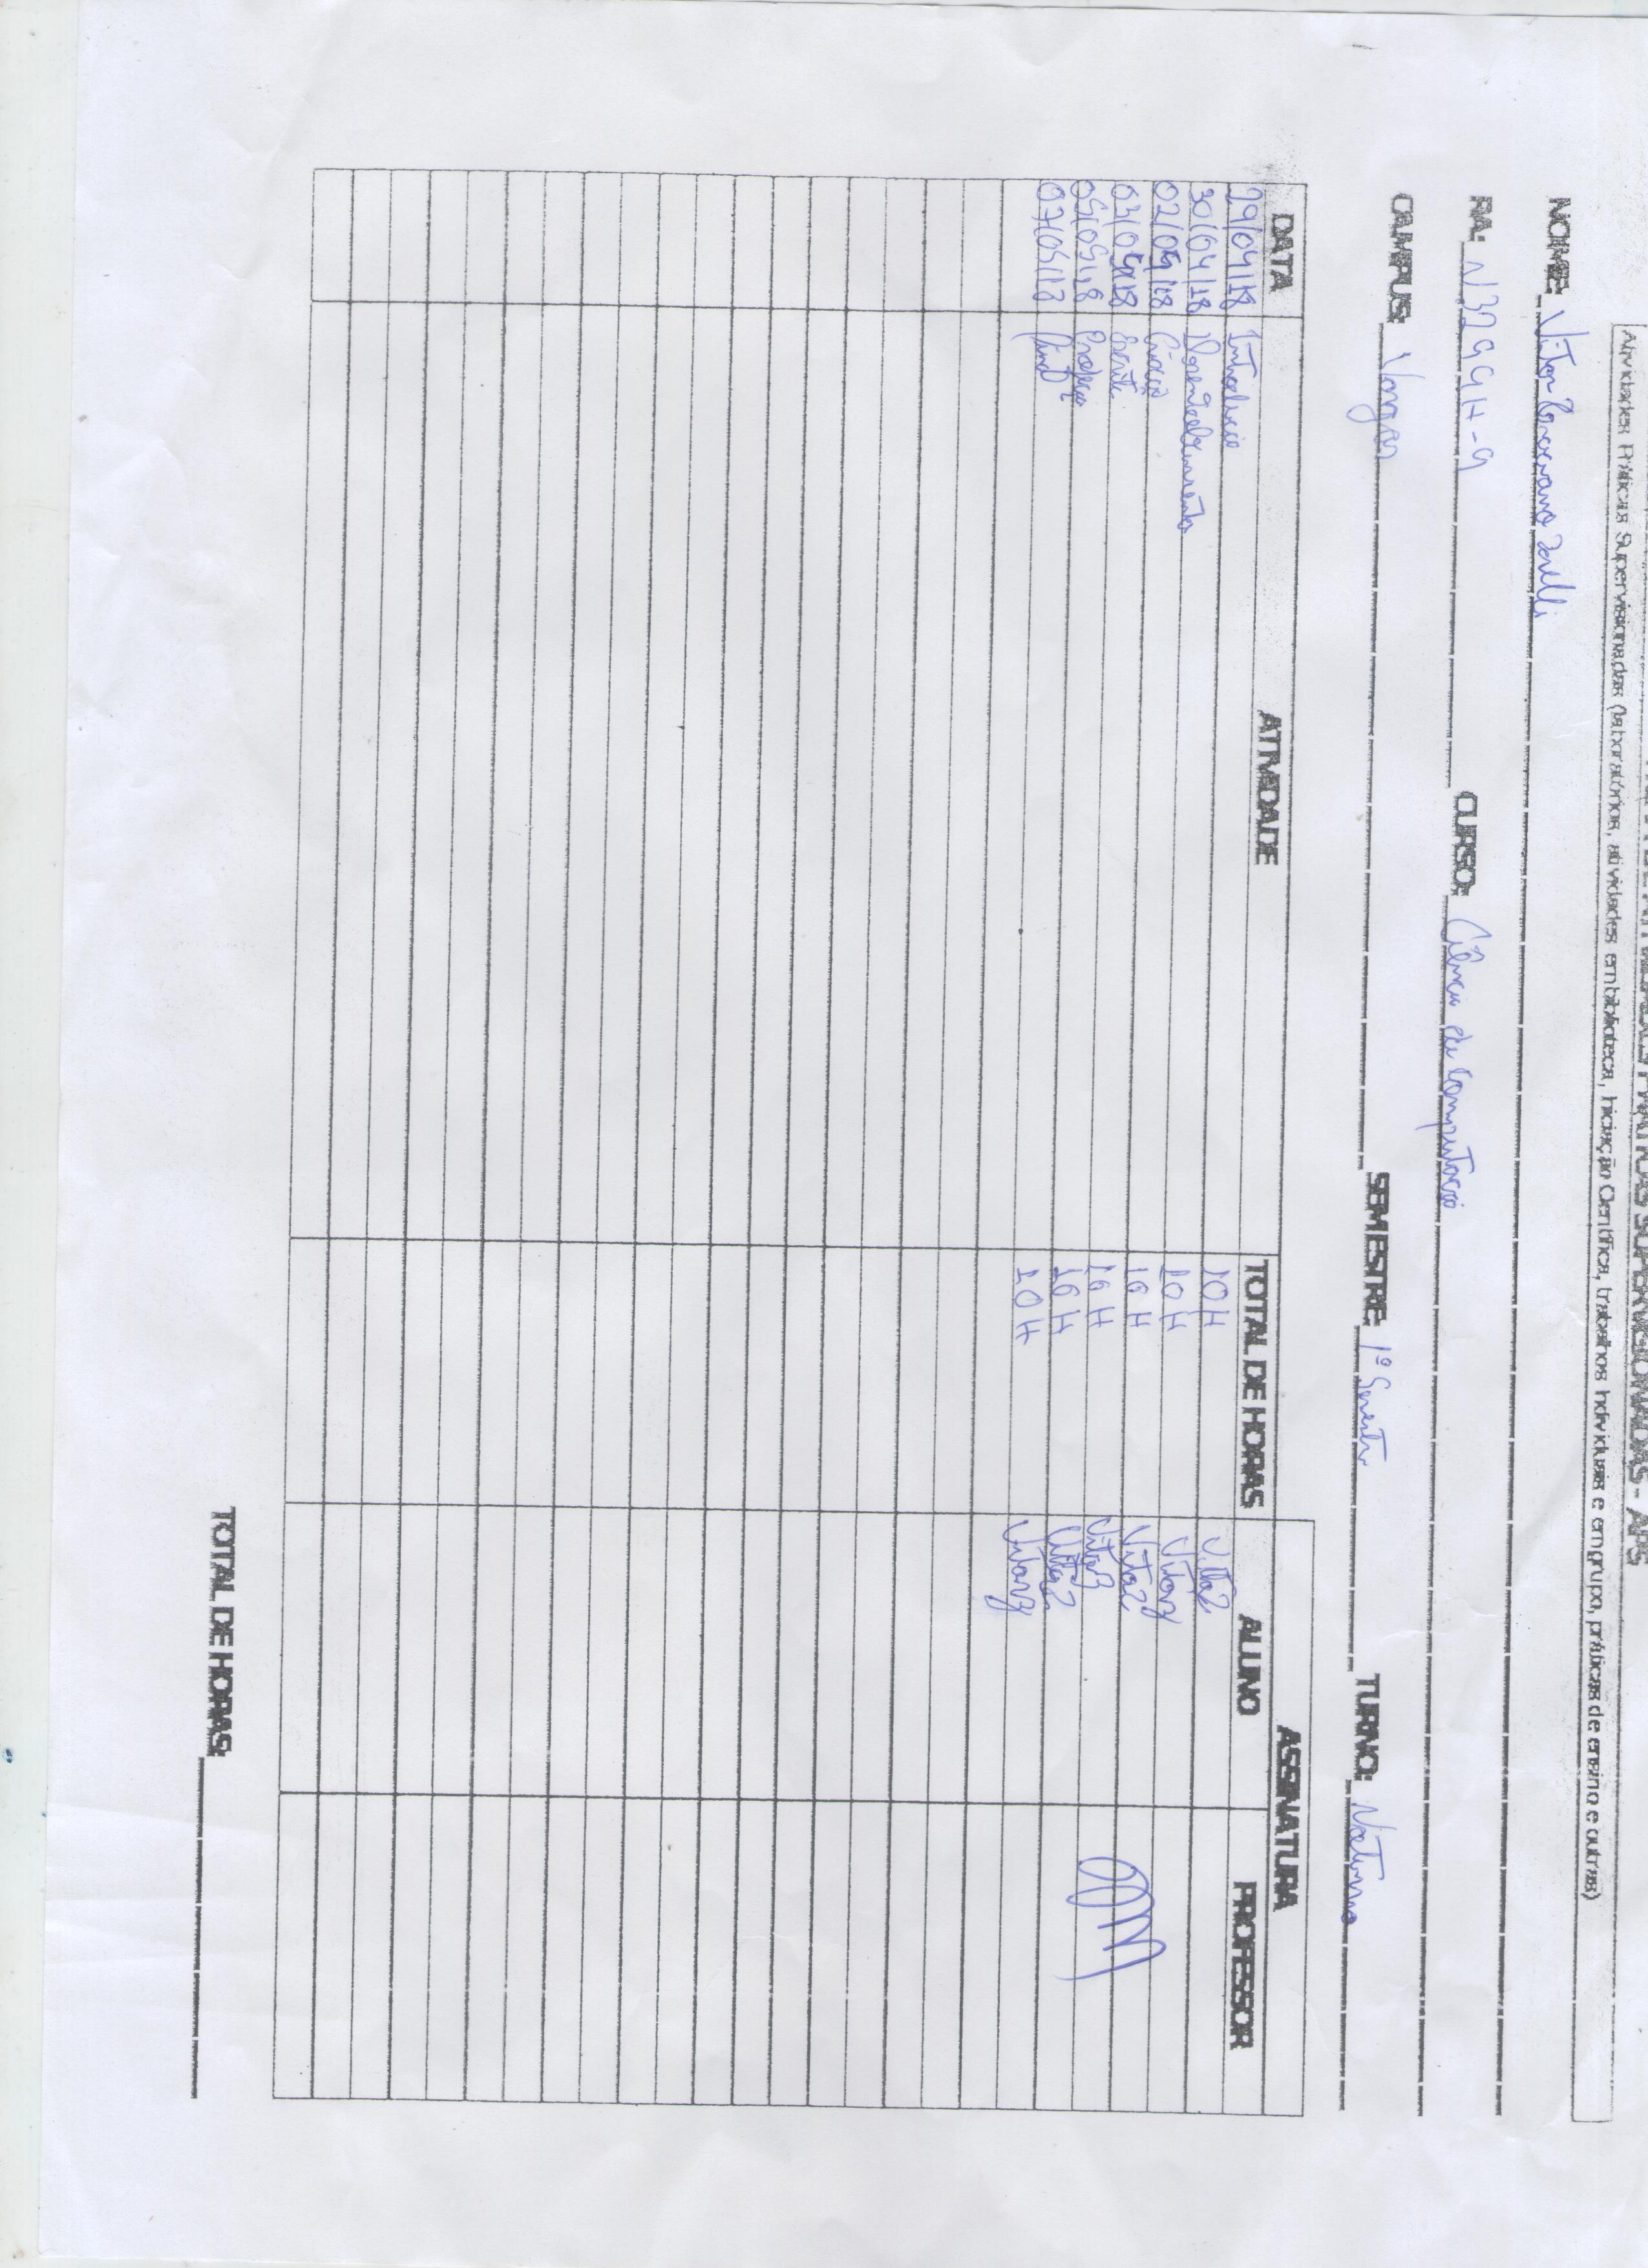 FICHA DE ATIVIDADES PRÁTICAS SUPERVISIONADAS - APS
Atividades Práticas Supervisionadas (laboratórios, atividades em biblioteca, Iniciação Científica, trabalhos Individuais e em grupo, práticas de ensino e outras)
NOME: Vitor
RA: N3299H-9 CURSO: Ciência da Computação
CAMPUS: Vargas SEMESTRE: 1º Semestre TURNO: Noturno
ASSINATURA
DATA ATIVIDADE TOTAL DE HORAS ALUNO PROFESSOR
29/04/18 Introdução 10 H
30/04/18 Desenvolvimento 10 H
02/05/18 Criação 10 H
03/05/18 Escrita 10 H
05/05/18 10 H
07/05/18 Final 10 H
TOTAL DE HORAS: